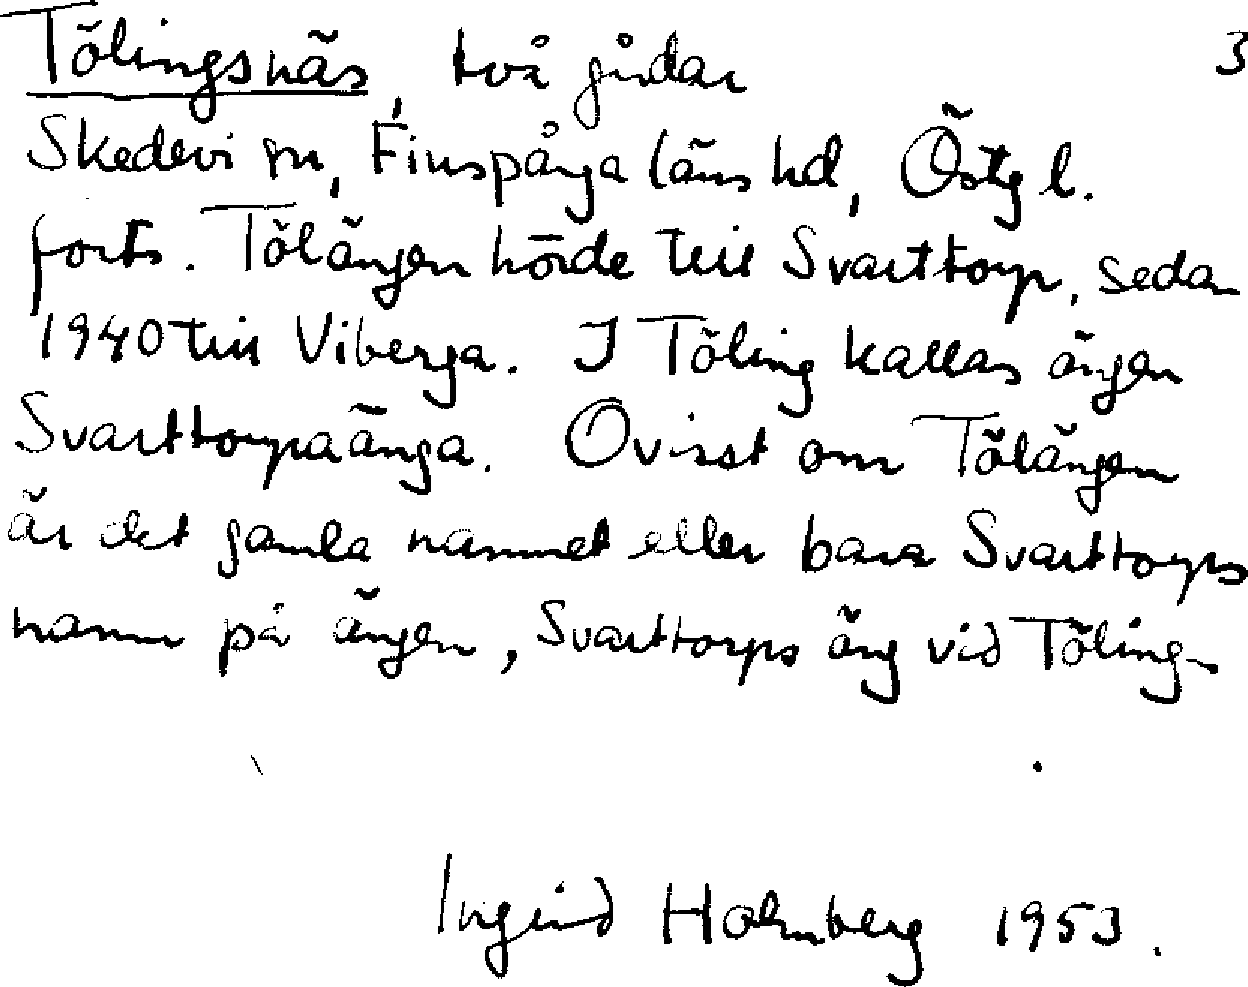 Tölingsnäs, två gårdar 3
Skedevi sn, Finspånga läns hd, Östg l.
forts. Tölängen hörde till Svarttorp, sedan
1940 till Viberga. I Töling kallas ängen
Svarttorpaänga. Ovisst om Tölängen
är det gamla namnet eller bara Svarttorps
namn på ängen, Svarttorps äng vid Töling-
Ingrid Holmberg 1953.